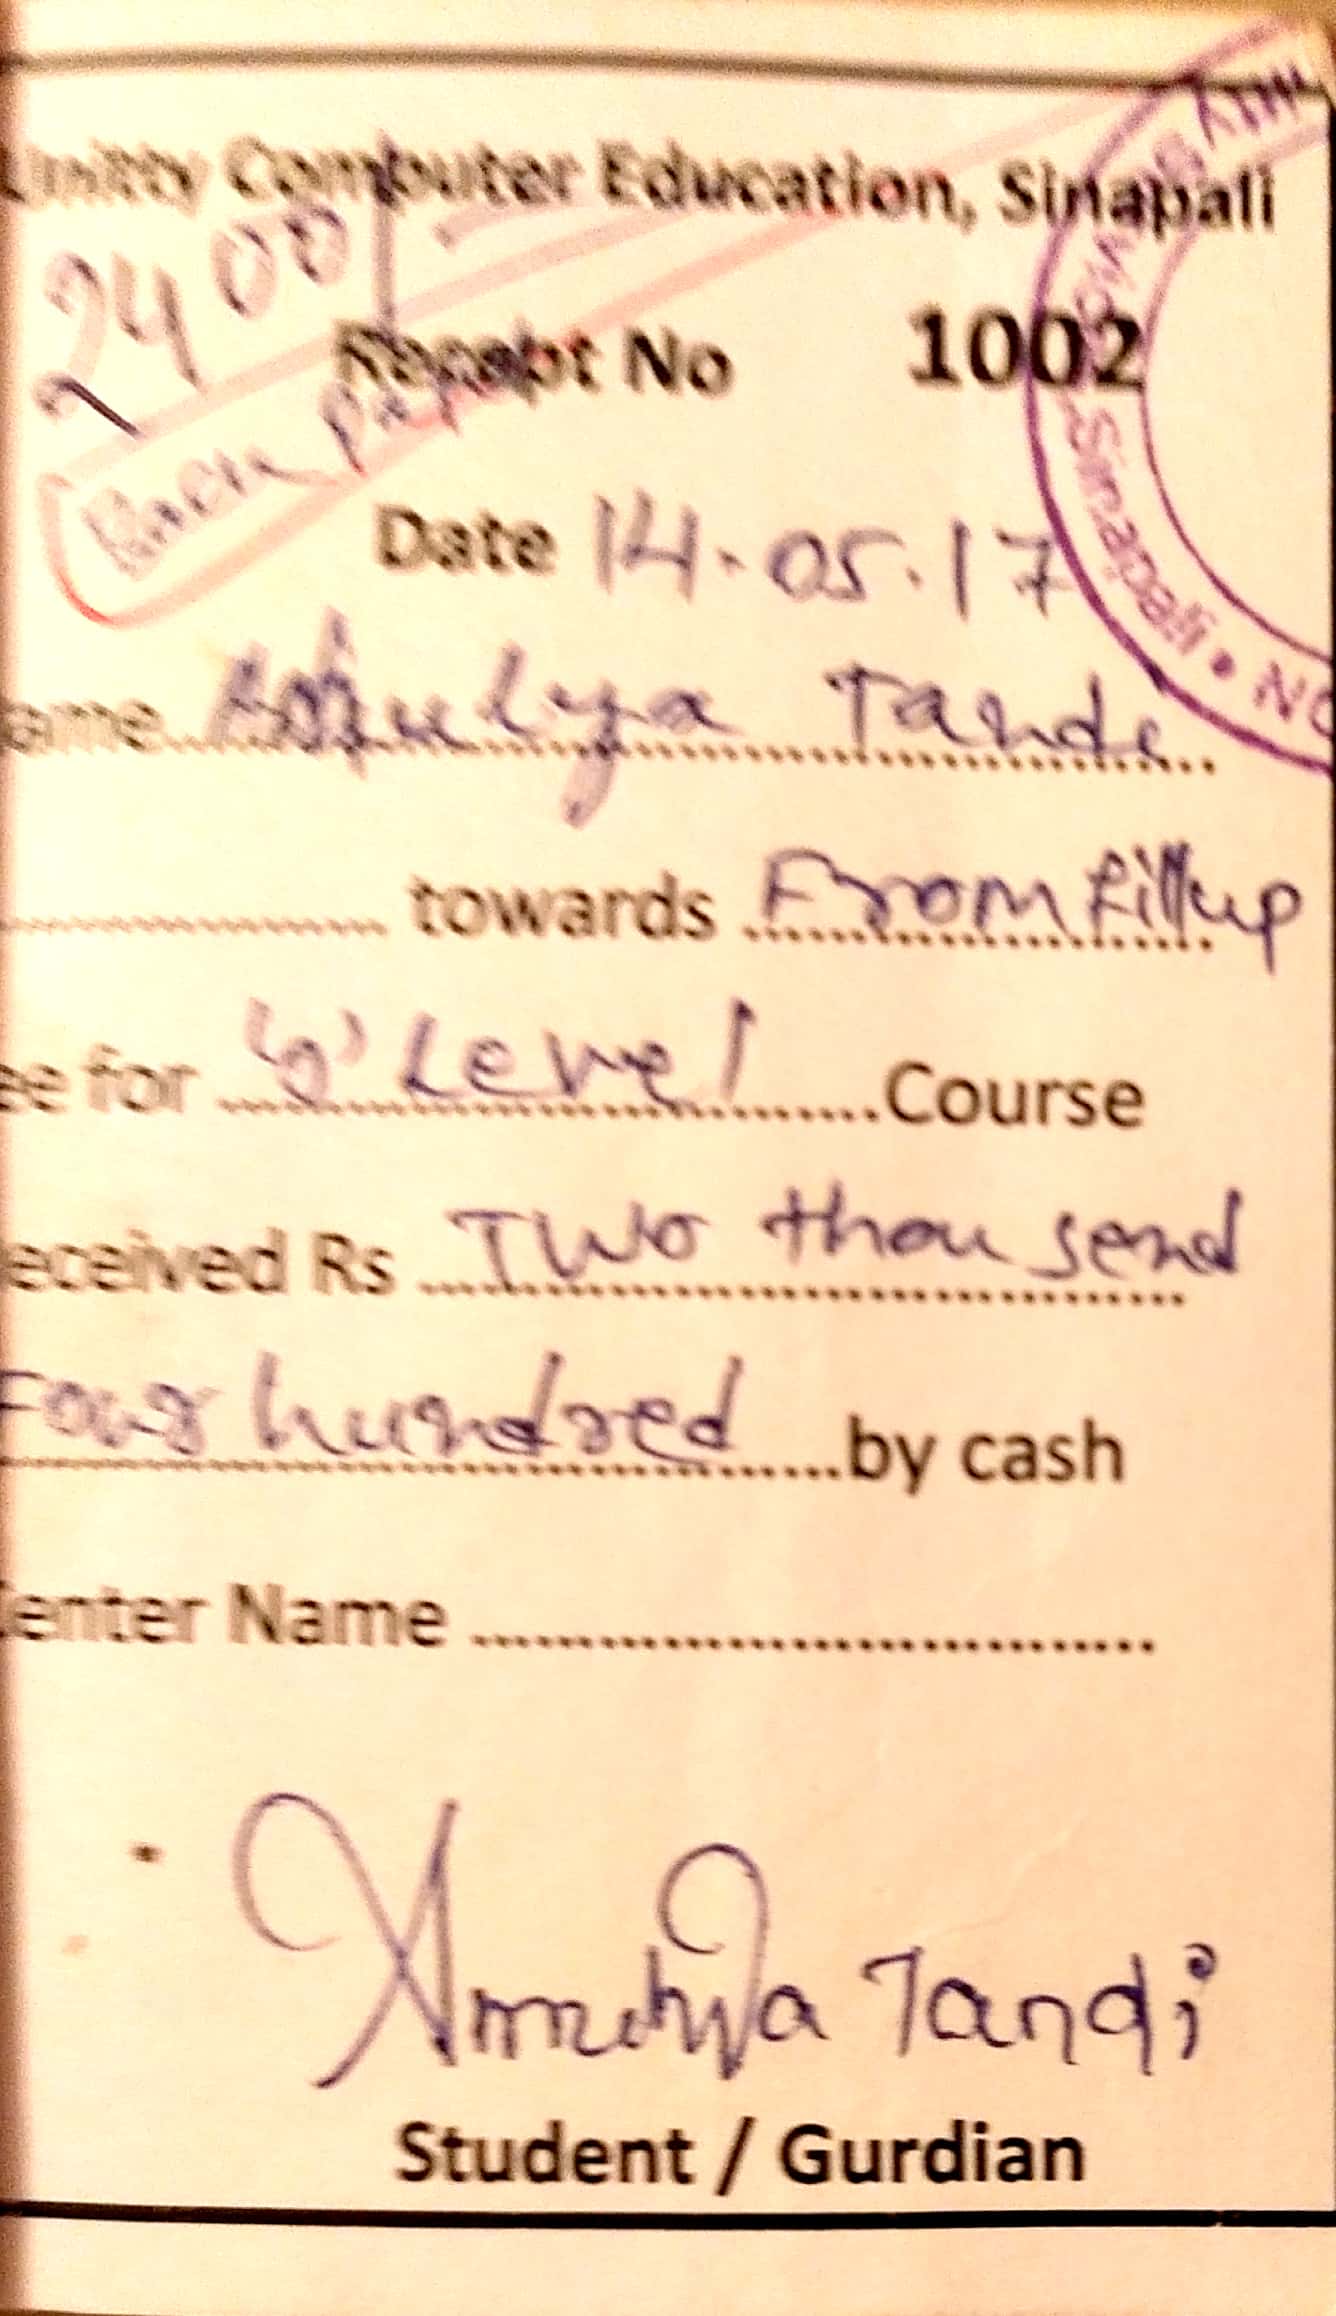 Unitty Computer Education, Sinapali
2400
Receipt No 1002
Back Paper
Date 14.05.17
ame Tande
towards From fillup
ee for Level Course
eceived Rs Two thousend
Four hundred by cash
enter Name
Amulya Tandi
Student / Gurdian
Sinapali